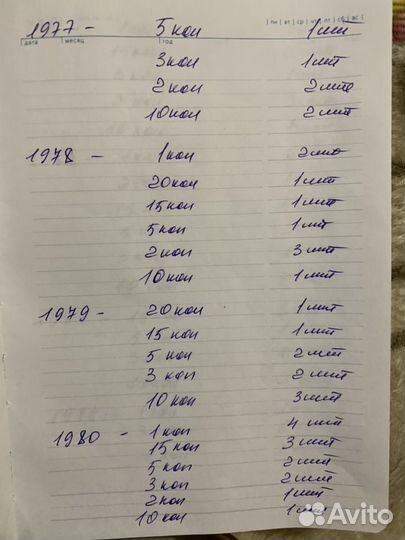 пн вт ср чт пт сб вс
1977 - 5 коп 1 шт
дата месяц год
3 коп 1 шт
2 коп 2 шт
10 коп 2 шт
1978 - 1 коп 2 шт
20 коп 1 шт
15 коп 1 шт
5 коп 1 шт
2 коп 3 шт
10 коп 1 шт
1979 - 20 коп 1 шт
15 коп 1 шт
5 коп 2 шт
3 коп 2 шт
10 коп 3 шт
1980 - 1 коп 4 шт
15 коп 3 шт
5 коп 2 шт
3 коп 2 шт
2 коп 1 шт
10 коп 1 шт
Avito